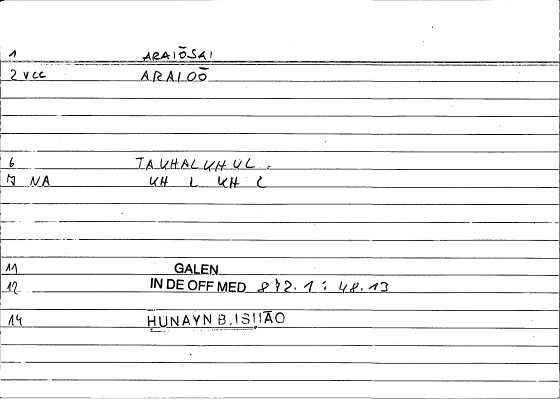 1 ARAIŌSAI
2 VCC ARAIOŌ
6 TAKHALKHUL.
7 NA KH L KH L
11 GALEN
12 IN DE OFF MED 872.1 : 48.13
14 HUNAYN B. ISHAO